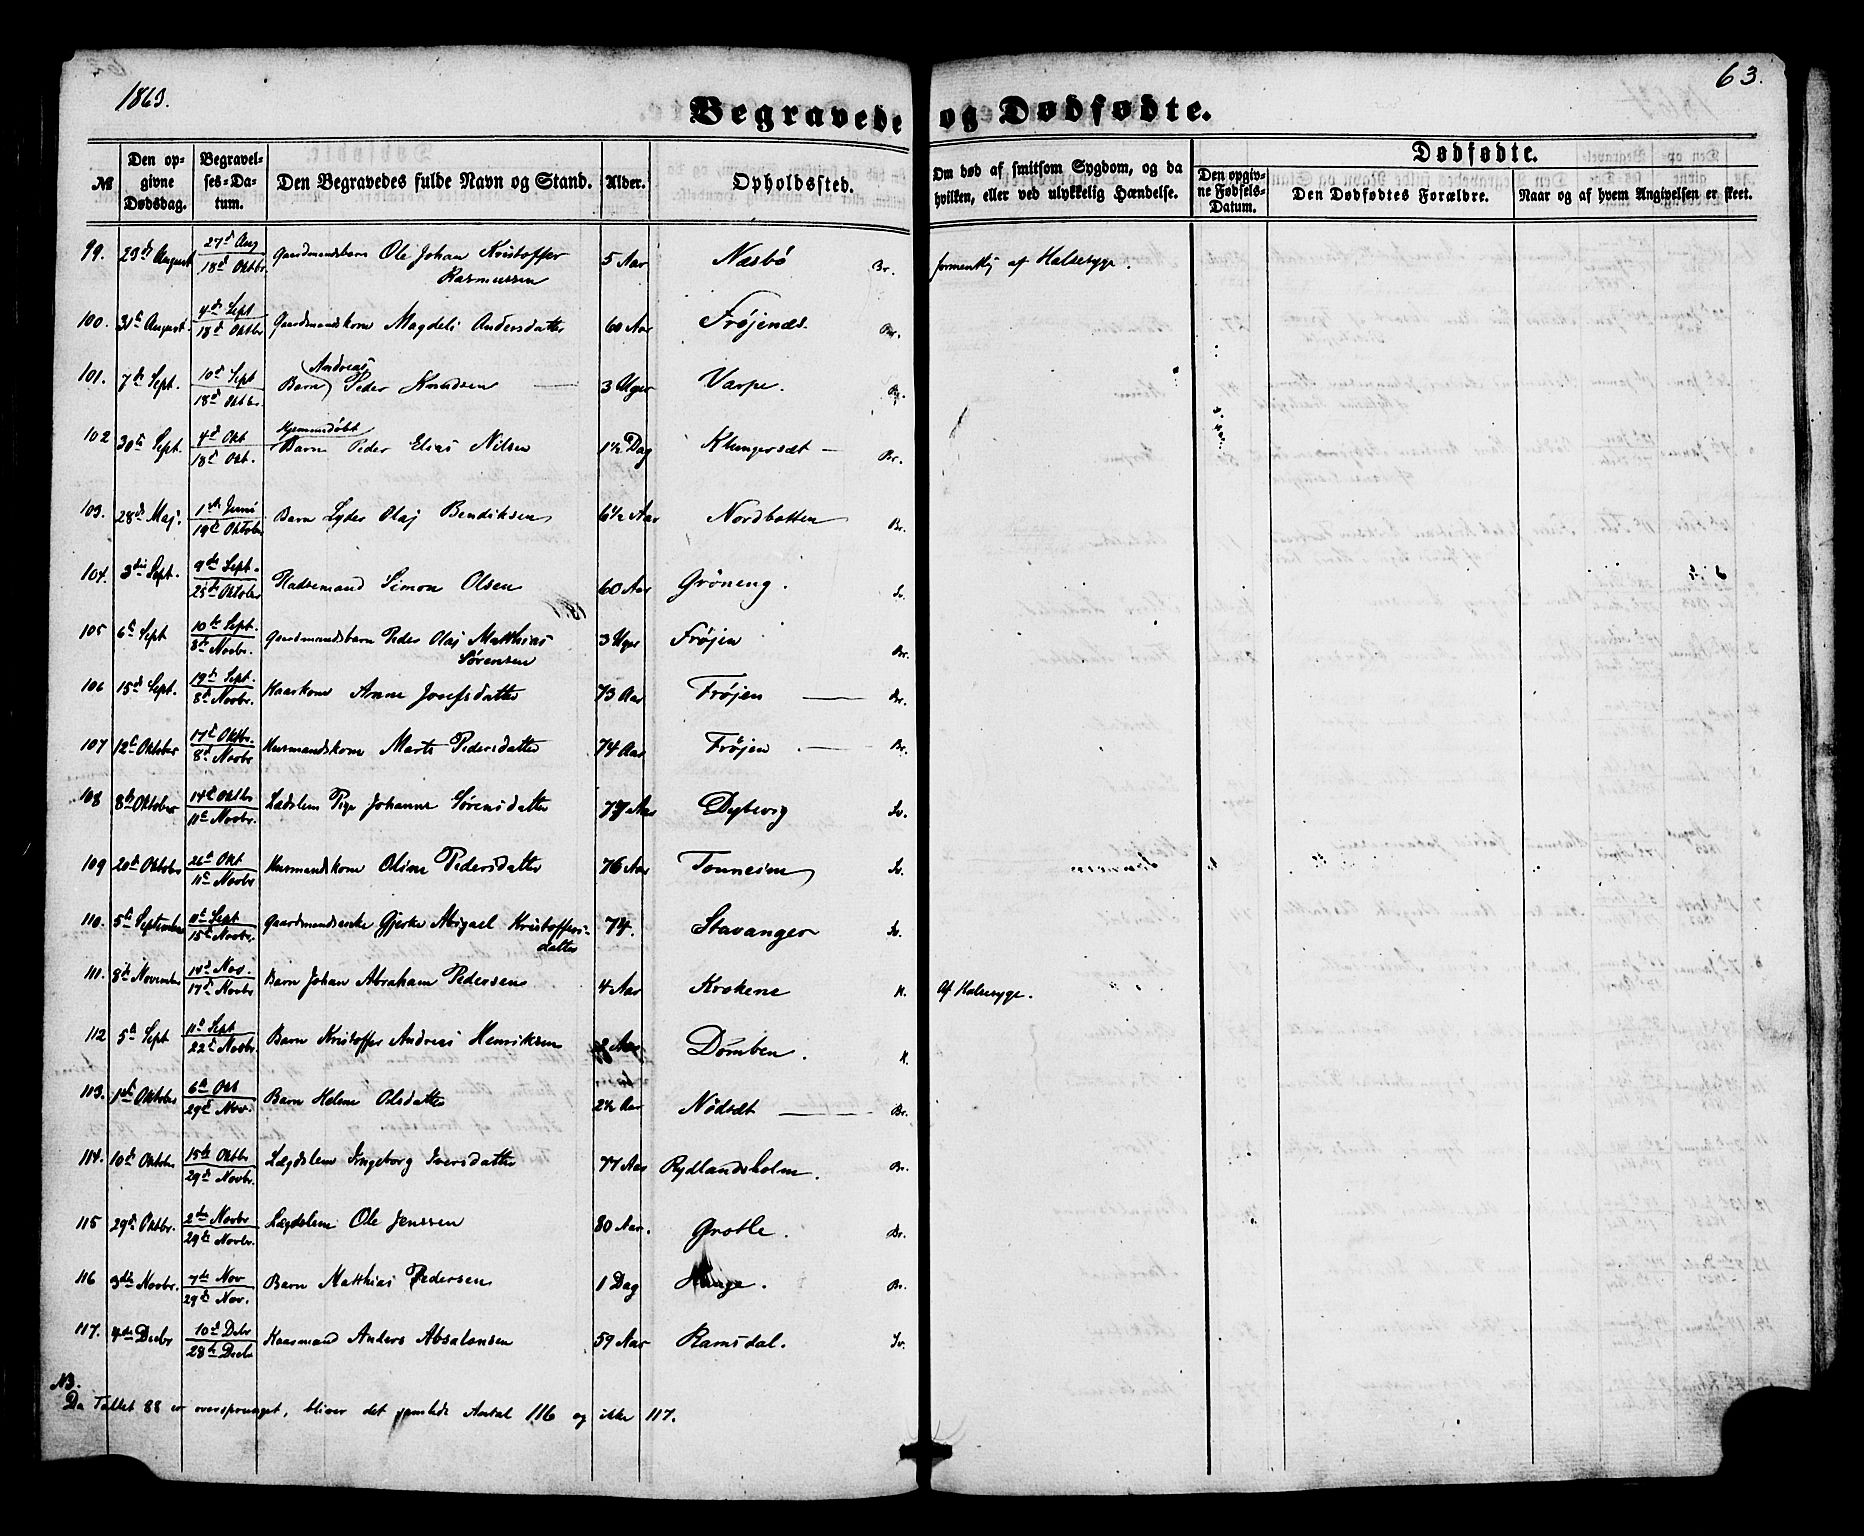 1863.
63.
Begravede og Dødfødte.
№ Den opgivne Dødsdag. Begravelses-Datum. Den Begravedes fulde Navn og Stand. Alder. Opholdssted. Om død af smitsom Sygdom, og da hvilken, eller ved ulykkelig Hændelse. Dødfødte. Den opgivne Fødsels-Datum. Den Dødfødtes Forældre. Naar og af hvem Angivelsen er skeet.
99. 23de August 27d Aug 18d Oktbr. Gaardmandsbarn Ole Johan Kristoffer 5 Aar Næsbø Br. formentlig af Halssyge.
Rasmussen
100. 31t August. 4de Sept 18d Oktbr Gaardmandskone Magdeli Andersdatter 60 Aar Frøjenæs. Br.
Andreas
101. 7de Sept. 10d Sept 18d Oktbr. Barn Peder Knudsen 3 Uger Varpe. Br.
Hjemmedøbt
102 30te Sept. 4d Okt 18d Okt. Barn Peder Elias Nilsen 1½ Dag Klungersæt Br.
103. 28de Maj. 1ste Juni 19de Oktober Barn Lyder Olaj Bendiksen 6½ Aar Nordbotten Br.
104. 3die Sept. 9de Sept. 25de Oktober Pladsemand Simon Olsen 60 Aar Grøneng. Sv.
105 6te Sept 10de Sept. 8de Novbr. Gaardmandsbarn Peder Olaj Matthias 3 Uger Frøjen Br.
Sørensen
106 15de Sept. 19de Sept. 8de Novbr. Kaarkone Anne Josefsdatter 73 Aar Frøjen Br.
107 12te Oktober 17d Oktbr. 8d Novbr Husmandskone Marte Pedersdatter 74 Aar Frøjen Br.
108 8de Oktober 14de Oktbr 11te Novbr. Lædslem Pige Johanne Sørensdatter 77 Aar Dybevig Sv.
109 20de Oktober 26de Okt 11te Novbr Husmandskone Oline Pedersdatter 76 Aar Tonneim Sv.
110. 5te September 11te Sept 15de Novbr. Gaardmandsenke Gjerke Abigael Kristoffers- 74. Stavanger Sv.
datter
111. 8de November 14d Nov. 17d Novbr Barn Johan Abraham Pedersen 4 Aar Krokene K. Af Halssyge.
112 5te Sept 11te Sept 22de Novbr. Barn Kristoffer Andreas Henriksen Aar Dømben. K.
113. 1ste Oktober 6te Okt 29de Nov. Barn Helene Olsdatter 2½ Aar Nødsæt Br.
114. 10de Oktober 15de Oktbr 29de Novbr. Lægdslem Ingeborg Iversdatter 77 Aar Rydlandsholm. Br.
115 29de Oktbr. 2den Novbr 29de Novbr. Lægdslem Ole Jenssen 80 Aar. Grotle. Br.
116 3die Novbr. 7de Nov 29de Nov. Barn Matthias Pedersen 1 Dag Hauge. Br.
117. 4de Decbr 10d Decbr 28de Decbr Kaarmand Anders Absalonsen 59 Aar Ramsdal. Sv.
NB.
Da Tallet 88 er oversprunget, bliver det samlede Antal 116 og ikke 117.